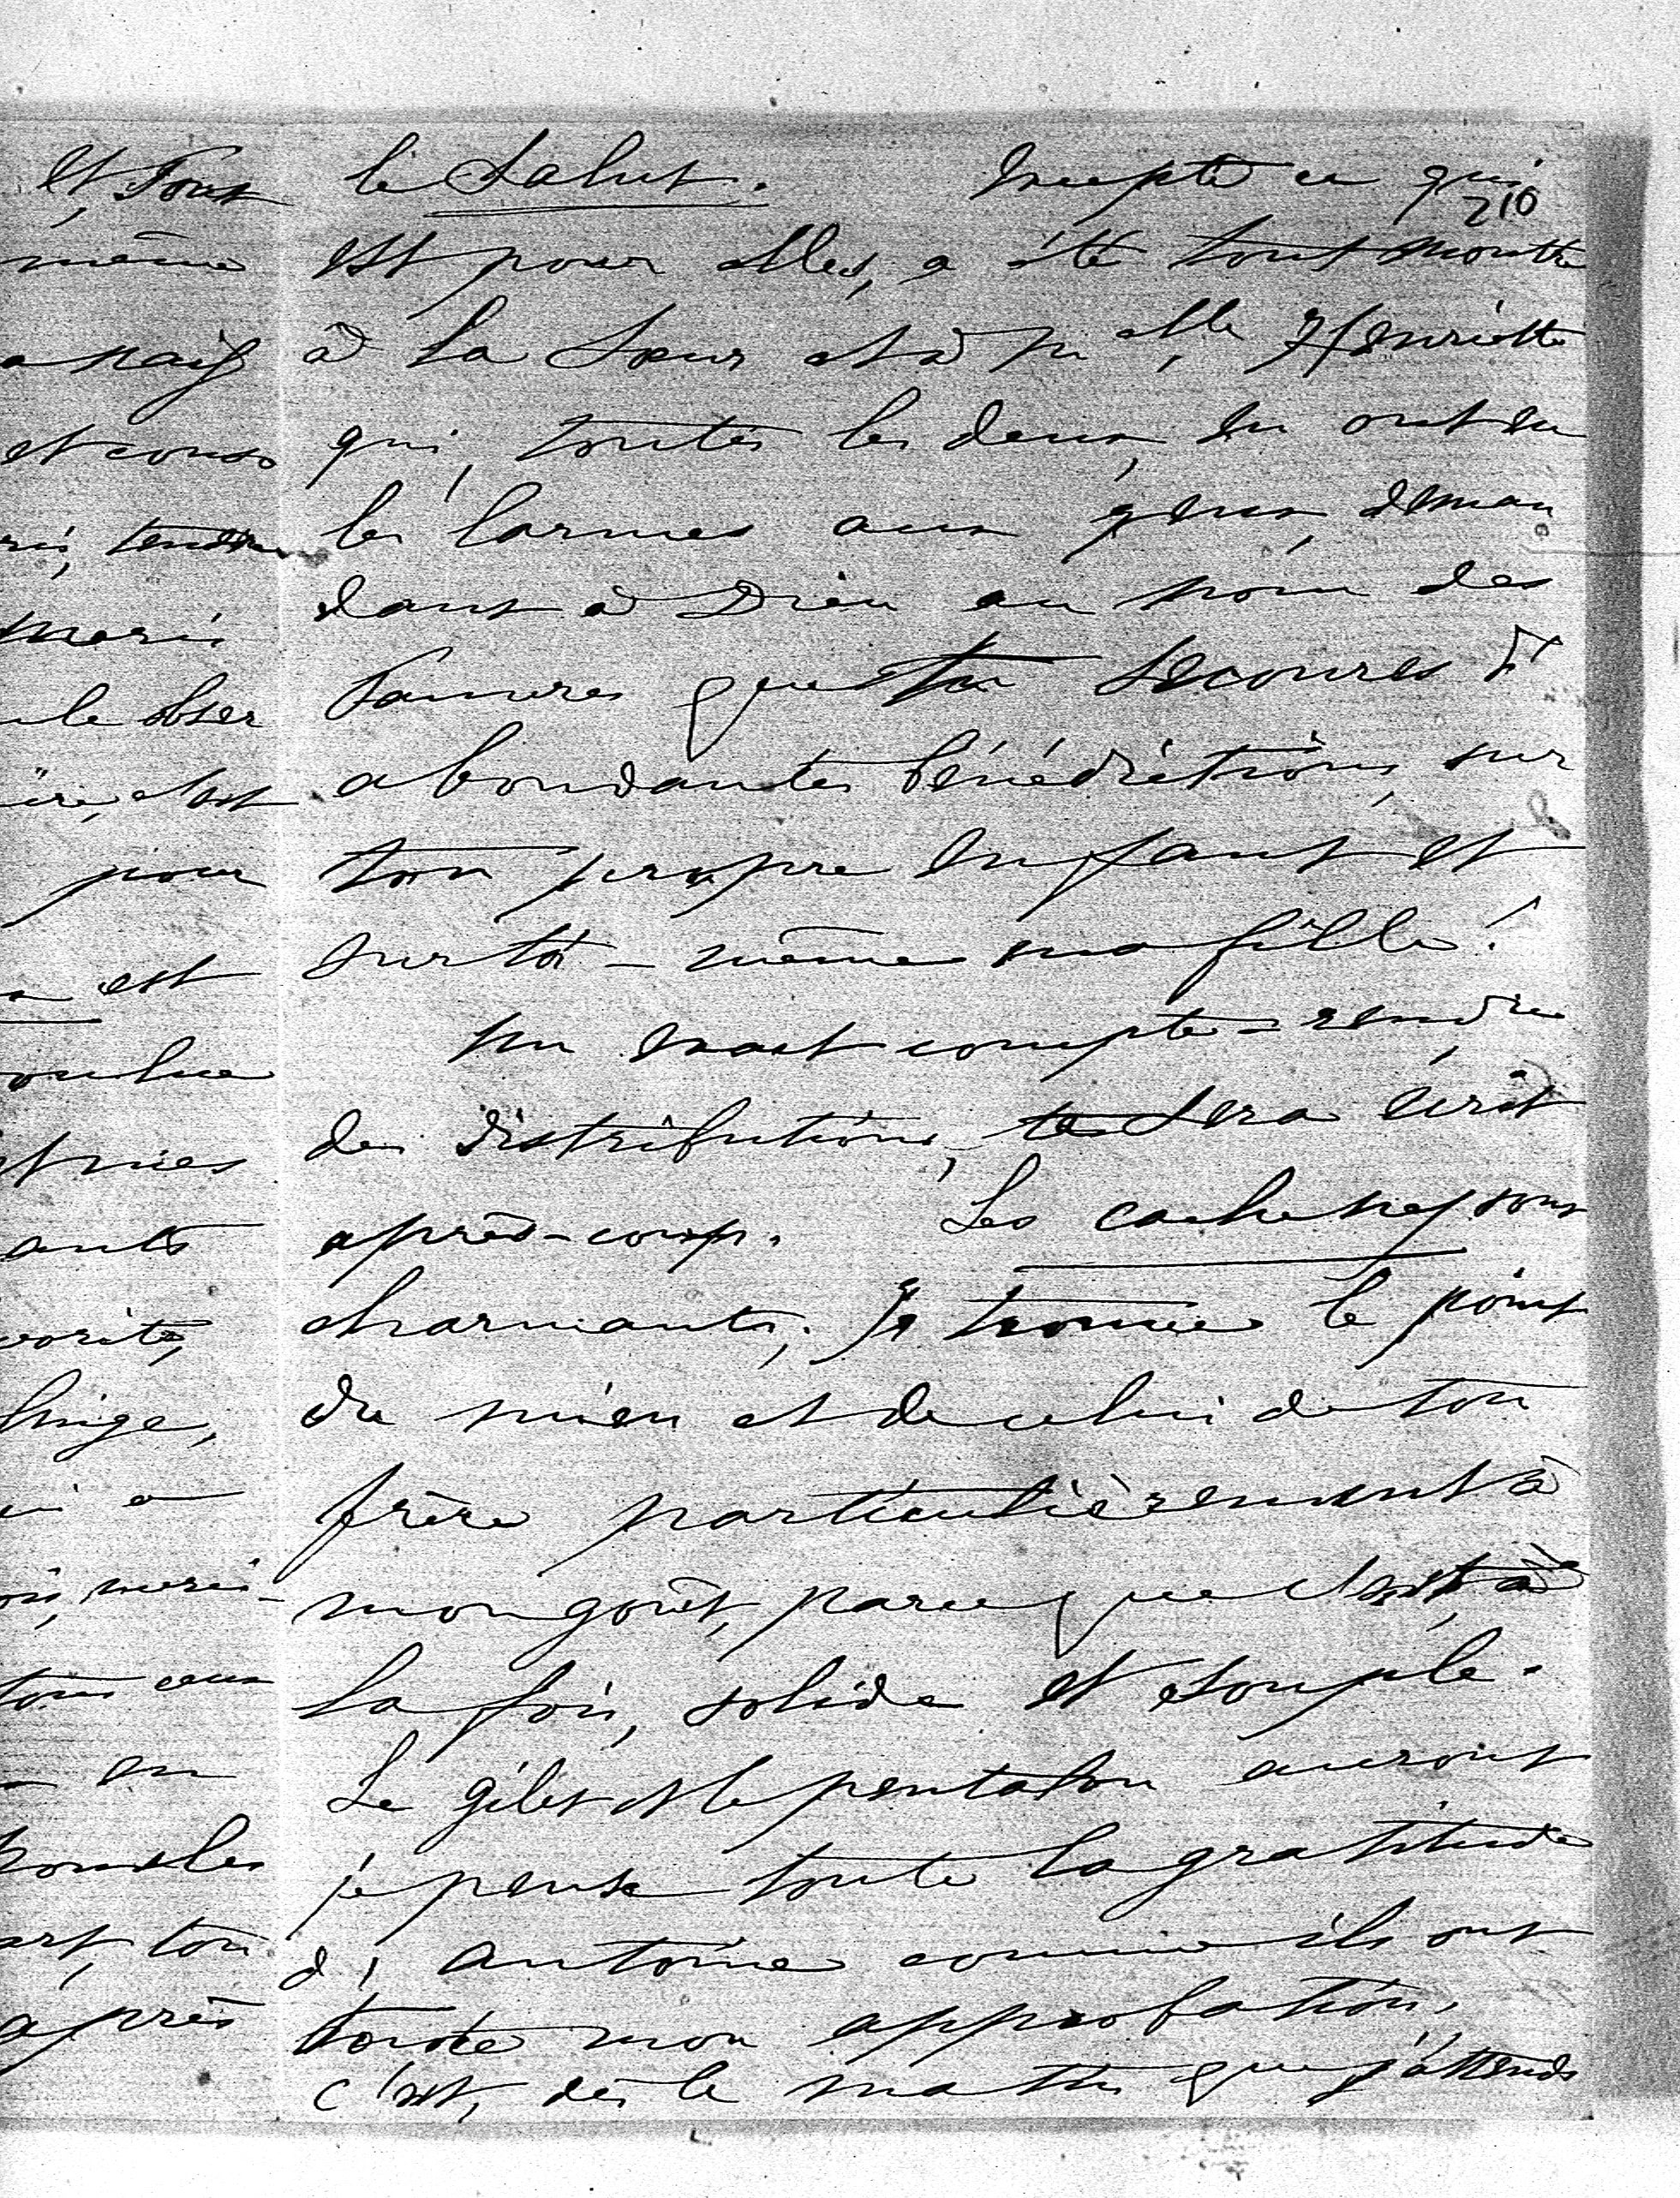 et, tout
même
naïf
et cons
ris, tendre
maris
le obser
ère, c'est
pour
est
oulue
et mes
ants
vorite,
linge,
tous ceux
en
art, ton
après
210
le Salut. Excepté ce qui
est pour elles, a été tout montré
à la Sœur et à Melle Henriette
qui, toutes les deux, en ont eu
les larmes aux yeux, deman
dant à Dieu au nom des
Pauvres que tu secoures d'
abondantes bénédictions, sur
ton propre enfant et
sur toi-même ma fille!
Un exact compte-rendu
des distributions, te sera écrit
après-coup. Les cachenez sont
charmants; Je trouve le point
du mien et de celui de ton
frère particulièrement à
mon goût, parce que c'est, à
la fois, solide et souple.
Le gilet et le pantalon auront
je pense toute la gratitude
d'Antoine comme ils ont
toute mon approbation.
C'est, dès le matin que j'attends